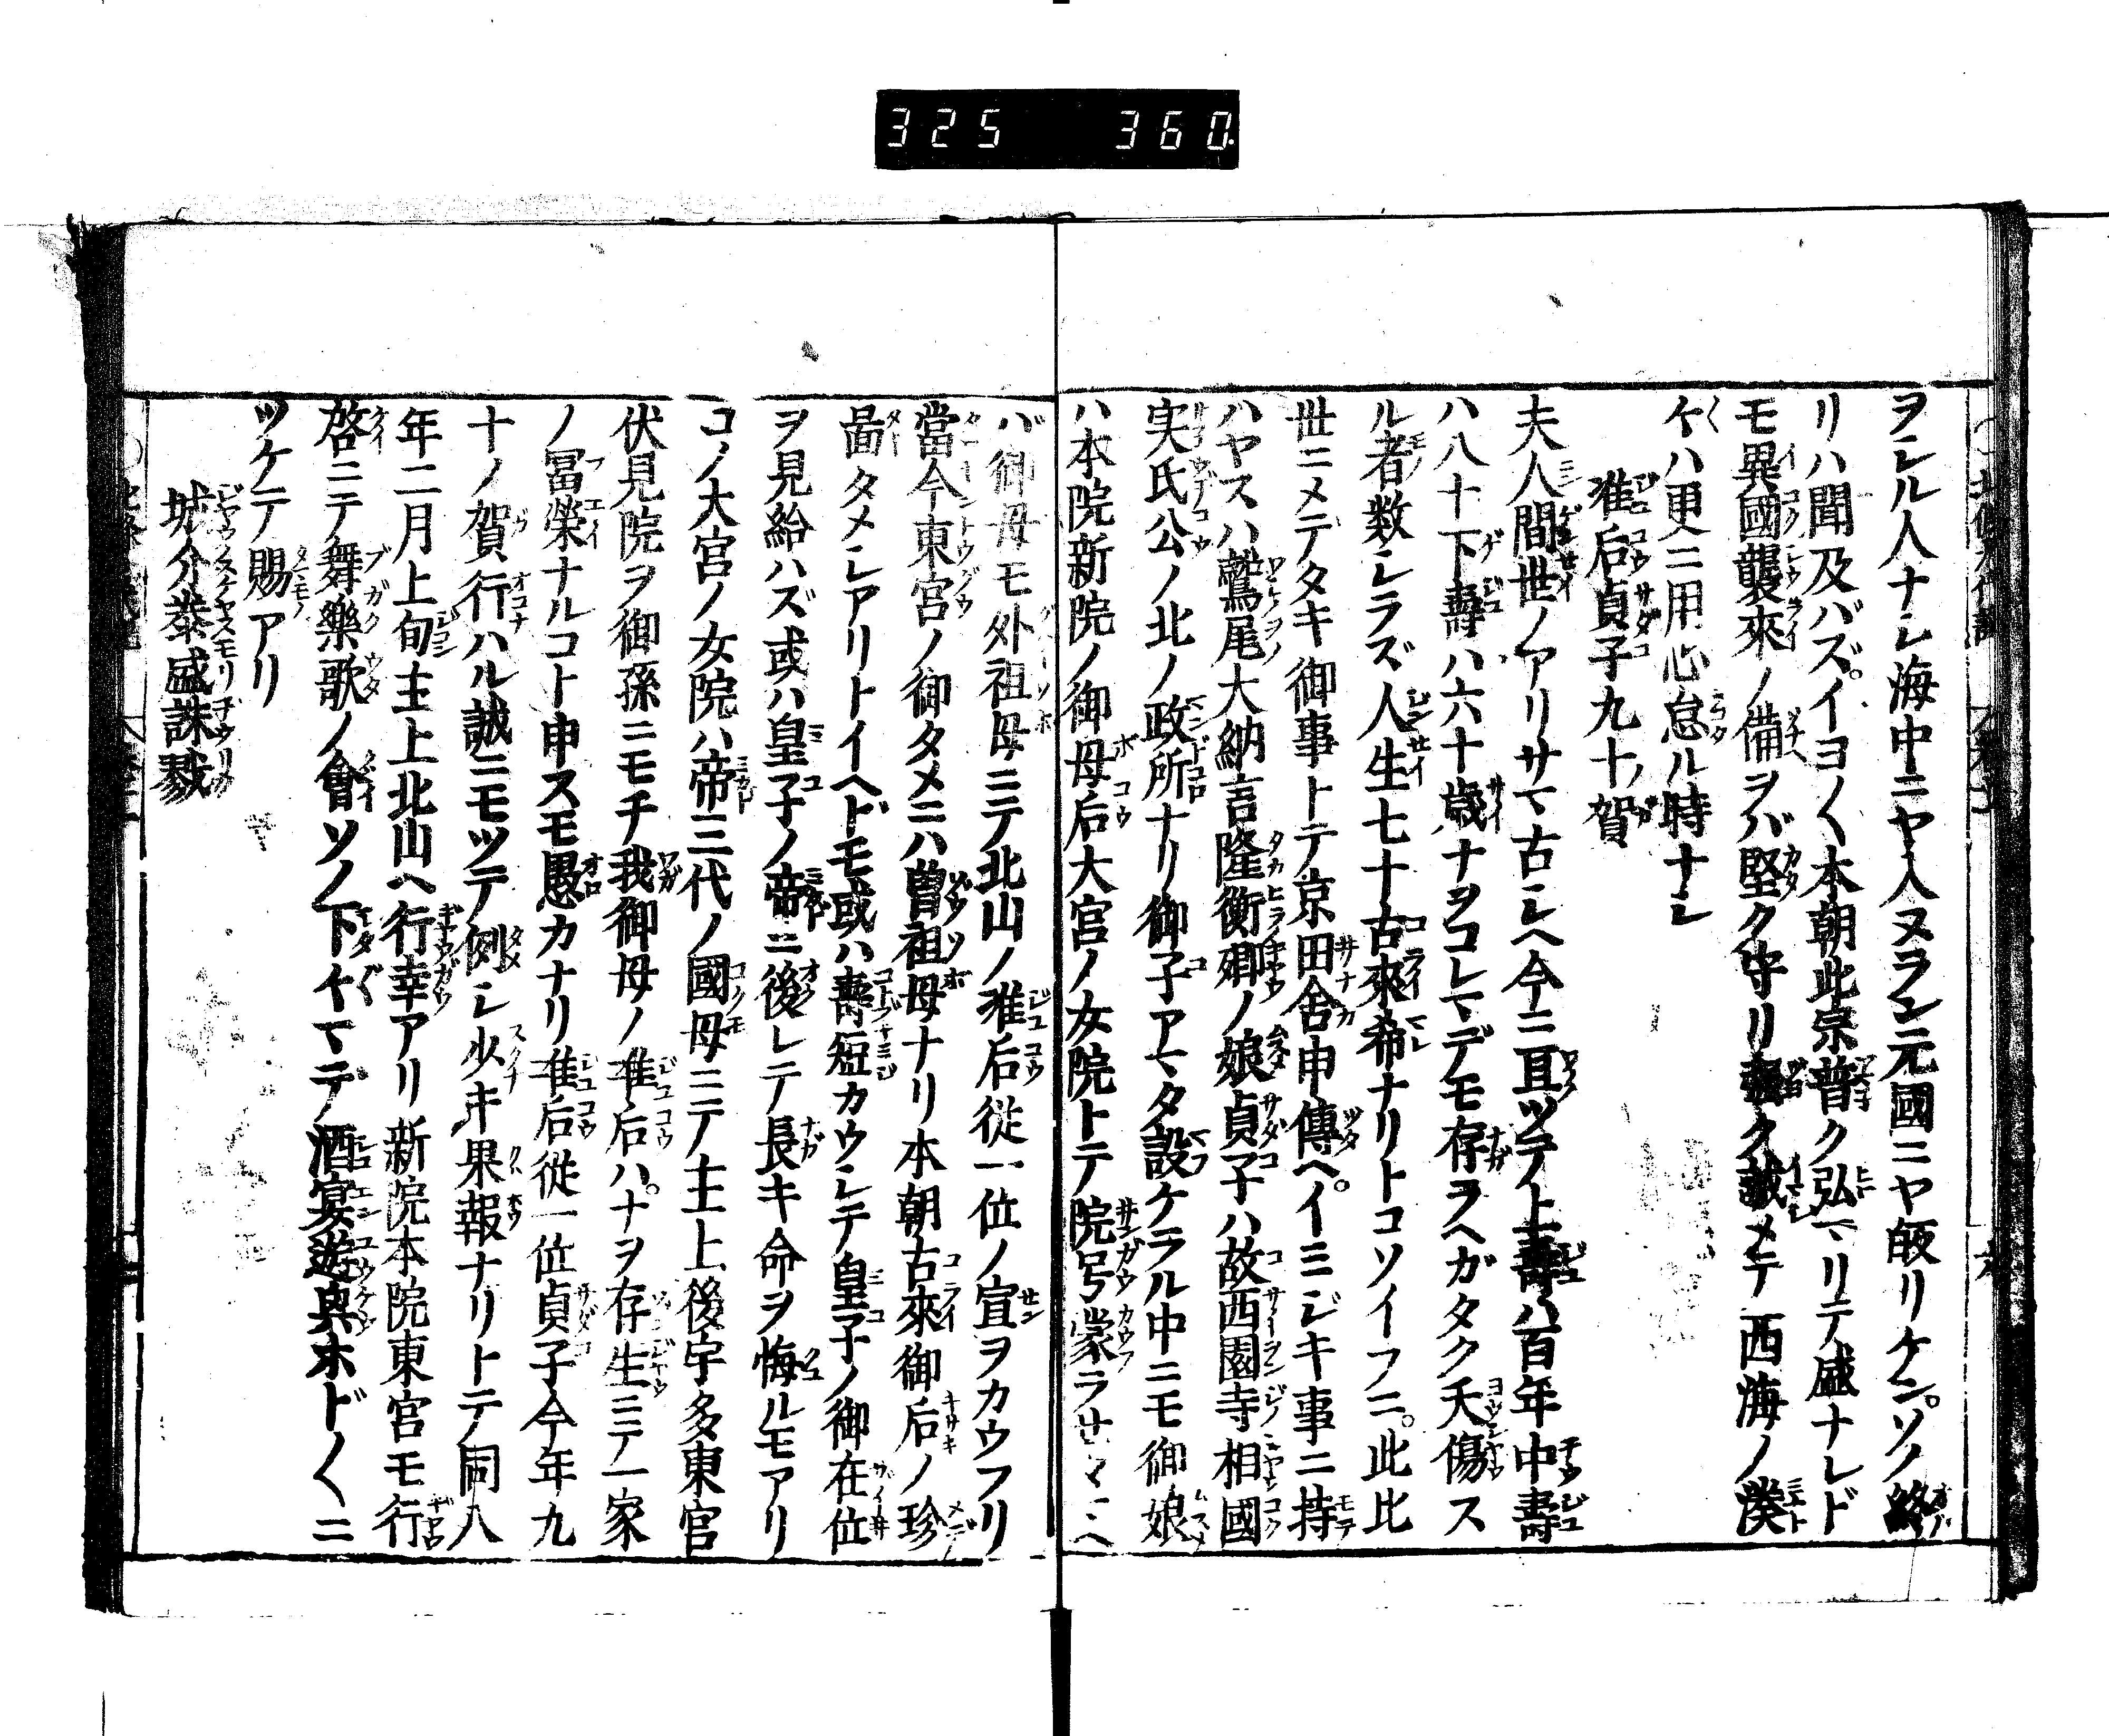 325 360.
ヲシル人ナシ海中ニヤ入ヌラン元國ニヤ皈リケンソノ終
リハ聞及バズ。イヨ〱本朝此宗普ク弘マリテ盛ナレド
モ異國襲來ノ備ヲバ堅ク守リ強ク誡メテ西海ノ湊
〱ハ更ニ用心怠ル時ナシ
准后貞子九十賀
夫人間世ノアリサマ古シヘ今ニ亘ツテ上壽ハ百年中壽
ハ八十下壽ハ六十歳ナヲコレマデモ存ヲヘガタク夭傷ス
ル者数シラズ人生七十古來希ナリトコソイフニ。此比
世ニメデタキ御事トテ京田舎申傳ヘ。イミジキ事ニ持
ハヤスハ鷲尾大納言隆衡卿ノ娘貞子ハ故西園寺相國
実氏公ノ北ノ政所ナリ御子アマタ設ケラル中ニモ御娘
ハ本院新院ノ御母后大宮ノ女院トテ院号蒙ラセ給ヘ
バ御母モ外祖母ニテ北山ノ准后従一位ノ宣ヲカウフリ
當今東宮ノ御タメニハ曽祖母ナリ本朝古來御后ノ珍
畾タメシアリトイヘドモ或ハ壽短カウシテ皇子ノ御在位
ヲ見給ハズ或ハ皇子ノ帝ニ後レテ長キ命ヲ悔ルモアリ
コノ大宮ノ女院ハ帝三代ノ國母ニテ主上後宇多東宮
伏見院ヲ御孫ニモチ我御母ノ准后ハ。ナヲ存生ニテ一家
ノ冨榮ナルコト申スモ愚カナリ准后従一位貞子今年九
十ノ賀行ハル誠ニモツテ例シ少キ果報ナリトテ同八
年二月上旬主上北山ヘ行幸アリ新院本院東宮モ行
啓ニテ舞樂歌ノ會ソノ下〱マデ酒宴遊興ホド〱ニ
ツケテ賜アリ
城介泰盛誅戮